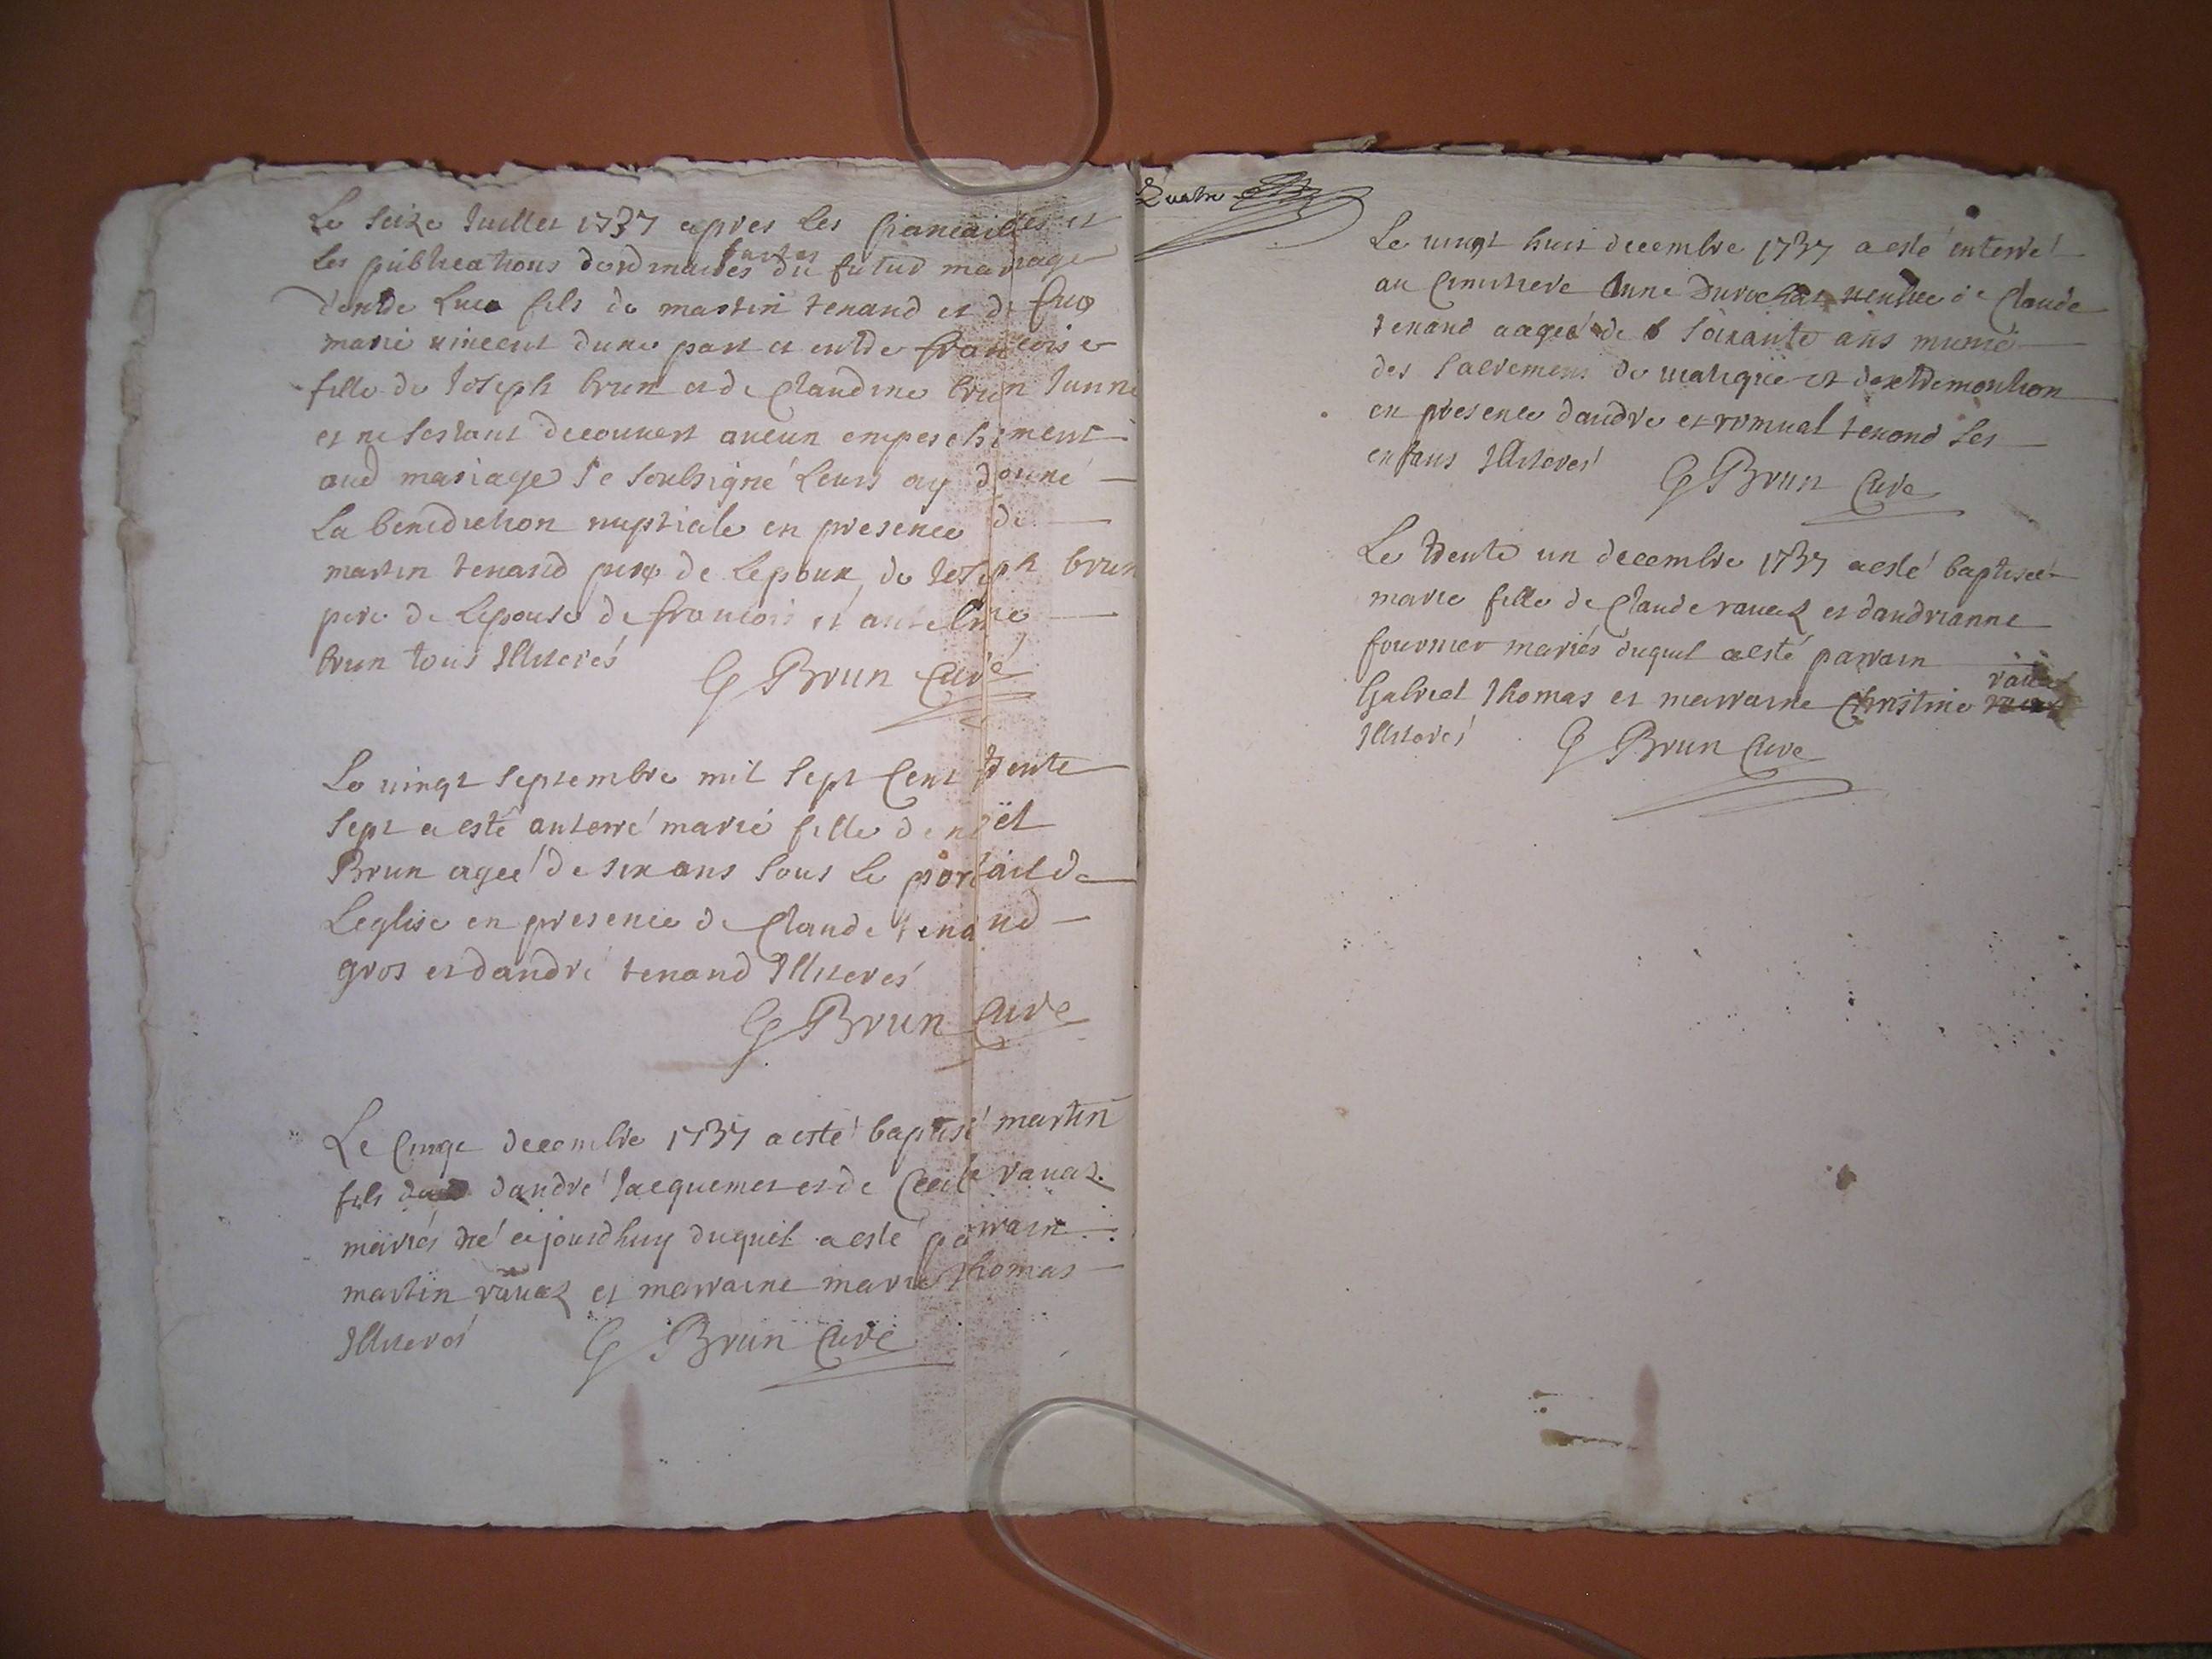 Le seize Juillet 1737 apres les fiancailles et
les publications dordinaires faites du futur mariage
dentre Luc fils de martin tenand et de feue
marie vincent dune part et entre francoise
fille de Joseph brun et de Claudine brun
et ne sestant decouvert aucun empeschement
aud mariage Je soubsigné leurs ay donné
La benediction nuptiale en presence de
martin tenand pere de lepoux, de Joseph brun
pere de lepouse de francois et antelme
brun tous Illiterés G Brun Curé
Le vingt septembre mil sept Cent trente
sept a esté anterré marie fille de noël
Brun ageé de six ans sous le portail de
Leglise en presence de Claude tenand
gros et dandré tenand Illiterés
G Brun Curé
Le Cinqe decembre 1737 a esté baptisé martin
fils dandré Jacquemet et de Cecile rauaz
mariés né ajourdhuy duquel a esté parrain
martin rauaz et marraine marie thomas
Illiterés G Brun Curé
Quatre
Le vingt huit decembre 1737 a esté enterré
au Cimitiere Anne veufve de Claude
tenand aageé de soixante ans munié
des sacremens de viatique et dextremontion
en presence dandre et romual tenand ses
enfans Illiterés G Brun Cure
Le trente un decembre 1737 a esté baptiseé
marie fille de Claude rauaz et dandrianne
fournier mariés duquel a esté parrain
Gabriel thomas et marraine Christine rauaz
Illiterés G Brun Cure